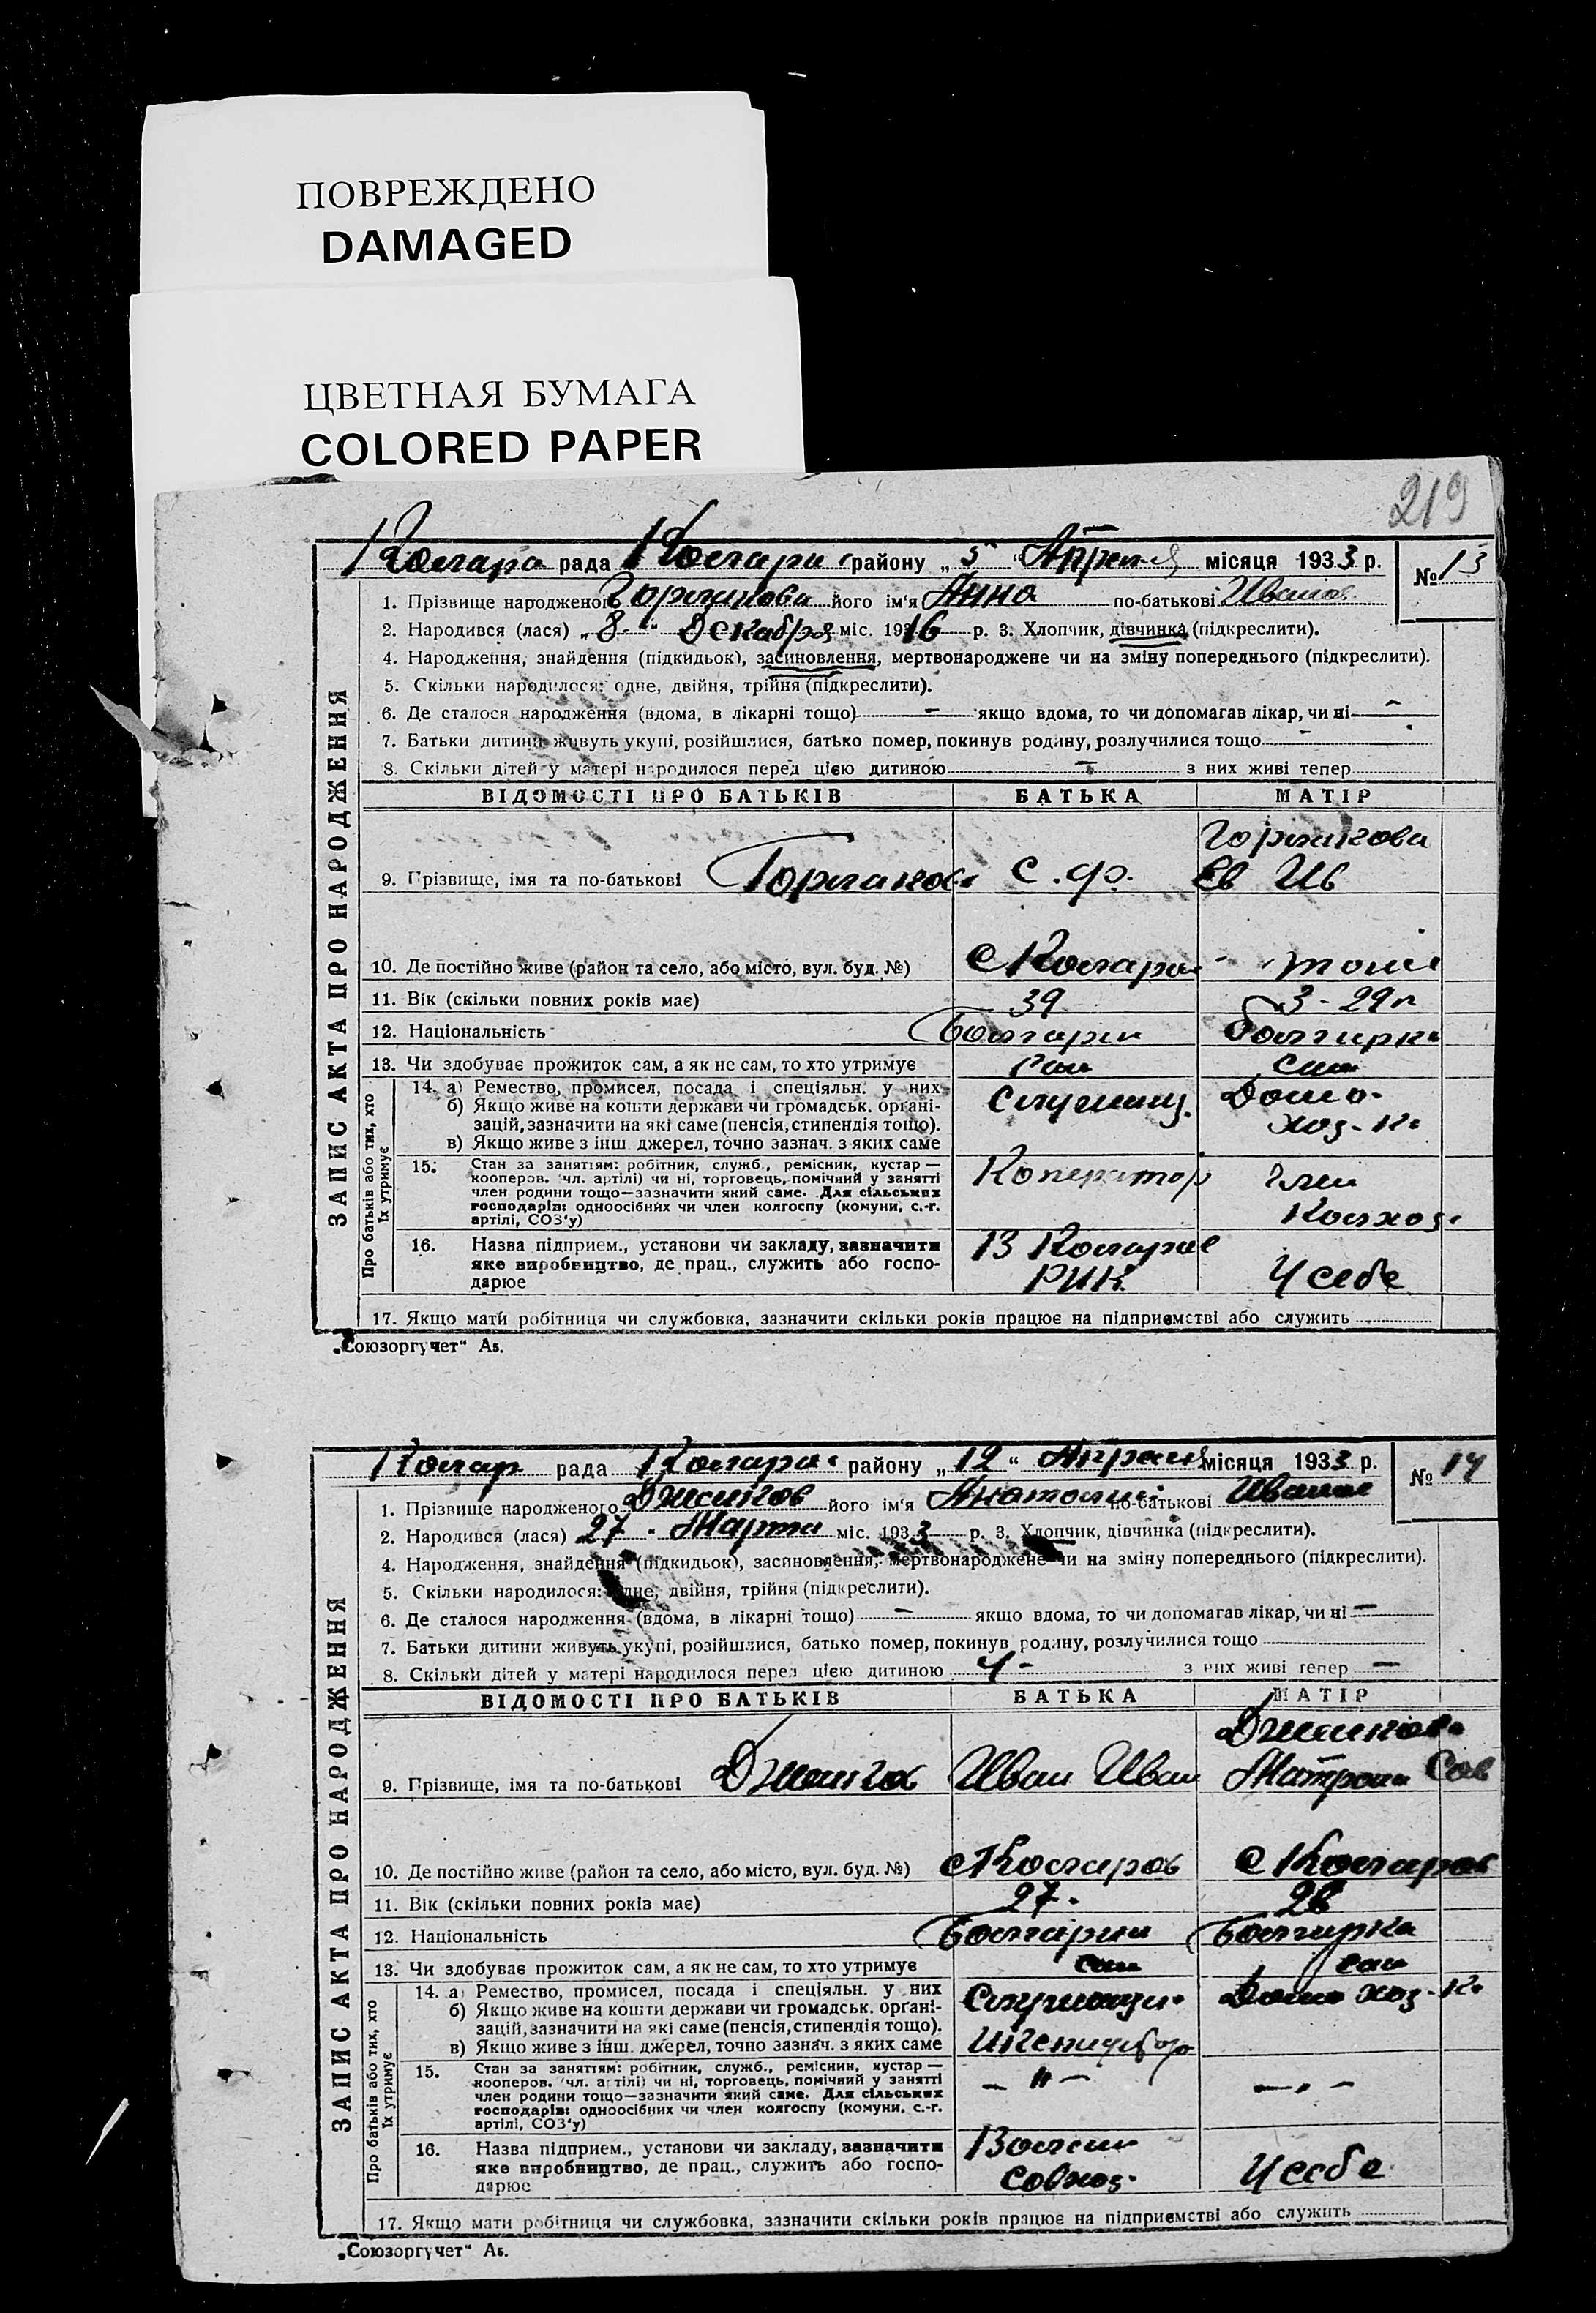 ПОВРЕЖДЕНО
DAMAGED
ЦВЕТНАЯ БУМАГА
COLORED PAPER
219
рада района „5“ Апреля місяця 1933 р. № 13
1. Прізвище народженого його ім'я Анна по-батькові Иванов
2. Народився (лася) „8“ Декабря міс. 1916 р. 3. Хлопчик, дівчинка (підкреслити).
4. Народження, знайдення (підкидьок), засиновлення, мертвонароджене чи на зміну попереднього (підкреслити).
5. Скільки народилося: одне, двійня, трійня (підкреслити).
6. Де сталося народження (вдома, в лікарні тощо) — якщо вдома, то чи допомагав лікар, чи ні —
7. Батьки дитини живуть укупі, розійшлися, батько помер, покинув родину, розлучилися тощо —
8. Скільки дітей у матері народилося перед цією дитиною — з них живі тепер
ВІДОМОСТІ ПРО БАТЬКІВ БАТЬКА МАТІР
9. Прізвище, імя та по-батькові С. Ф. Ев Ив
10. Де постійно живе (район та село, або місто, вул. буд. №)
11. Вік (скільки повних років має) 39 29
12. Національність Болгарин Болгарка
13. Чи здобуває прожиток сам, а як не сам, то хто утримує Сам Сам
14. а) Ремество, промисел, посада і спеціяльн. у них Служащ. Домо-
б) Якщо живе на кошти держави чи громадськ. органі- хоз-ка
зацій, зазначити на які саме (пенсія, стипендія тощо).
в) Якщо живе з інш джерел, точно зазнач. з яких саме
15. Стан за занятіям: робітник, служб., ремісник, кустар — Коператор Член
кооперов. чл. артілі) чи ні, торговець, помічний у занятті Колхоз.
член родини тощо—зазначити який саме. Для сільських
господарів: одноосібних чи член колгоспу (комуни, с.-г.
артілі, СОЗ'у)
16. Назва підприєм., установи чи закладу, зазначити В
яке виробництво, де прац., служить або госпо- РИК У себе
дарює
17. Якщо мати робітниця чи службовка, зазначити скільки років працює на підприємстві або служить
ЗАПИС АКТА ПРО НАРОДЖЕННЯ
Про батьків або тих, хто
їх утримує
„Союзоргучет“ Аь.
рада району „12“ Апреля місяця 1933 р. № 14
1. Прізвище народженого його ім'я Анатолий по-батькові Иванов
2. Народився (лася) 27 „ Марта міс. 1933 р. 3. Хлопчик, дівчинка (підкреслити).
4. Народження, знайдення (підкидьок), засиновлення, мертвонароджене чи на зміну попереднього (підкреслити).
5. Скільки народилося: одне, двійня, трійня (підкреслити).
6. Де сталося народження (вдома, в лікарні тощо) — якщо вдома, то чи допомагав лікар, чи ні —
7. Батьки дитини живуть укупі, розійшлися, батько помер, покинув родину, розлучилися тощо
8. Скільки дітей у матері народилося перед цією дитиною 4 – з них живі тепер —
ВІДОМОСТІ ПРО БАТЬКІВ БАТЬКА МАТІР
9. Прізвище, імя та по-батькові Иван Иван Матрона Сав
10. Де постійно живе (район та село, або місто, вул. буд. №)
11. Вік (скільки повних років має) 27.
12. Національність Болгарин Болгарка
13. Чи здобуває прожиток сам, а як не сам, то хто утримує сам сам
14. а) Ремество, промисел, посада і спеціяльн. у них Служащи. Домо хоз-ка
б) Якщо живе на кошти держави чи громадськ. органі-
зацій, зазначити на які саме (пенсія, стипендія тощо).
в) Якщо живе з інш. джерел, точно зазнач. з яких саме
15. Стан за заняттям: робітник, служб., ремісник, кустар — – " – – " –
кооперов. чл. артілі) чи ні, торговець, помічний у занятті
член родини тощо—зазначити який саме. Для сільських
господарів: одноосібних чи член колгоспу (комуни, с.-г.
артілі, СОЗ'у)
16. Назва підприєм., установи чи закладу, зазначити
яке виробництво, де прац., служить або госпо- Совхоз. У себе
дарює
17. Якщо мати робітниця чи службовка, зазначити скільки років працює на підприємстві або служить
ЗАПИС АКТА ПРО НАРОДЖЕННЯ
Про батьків або тих, хто
їх утримує
„Союзоргучет“ Аь.